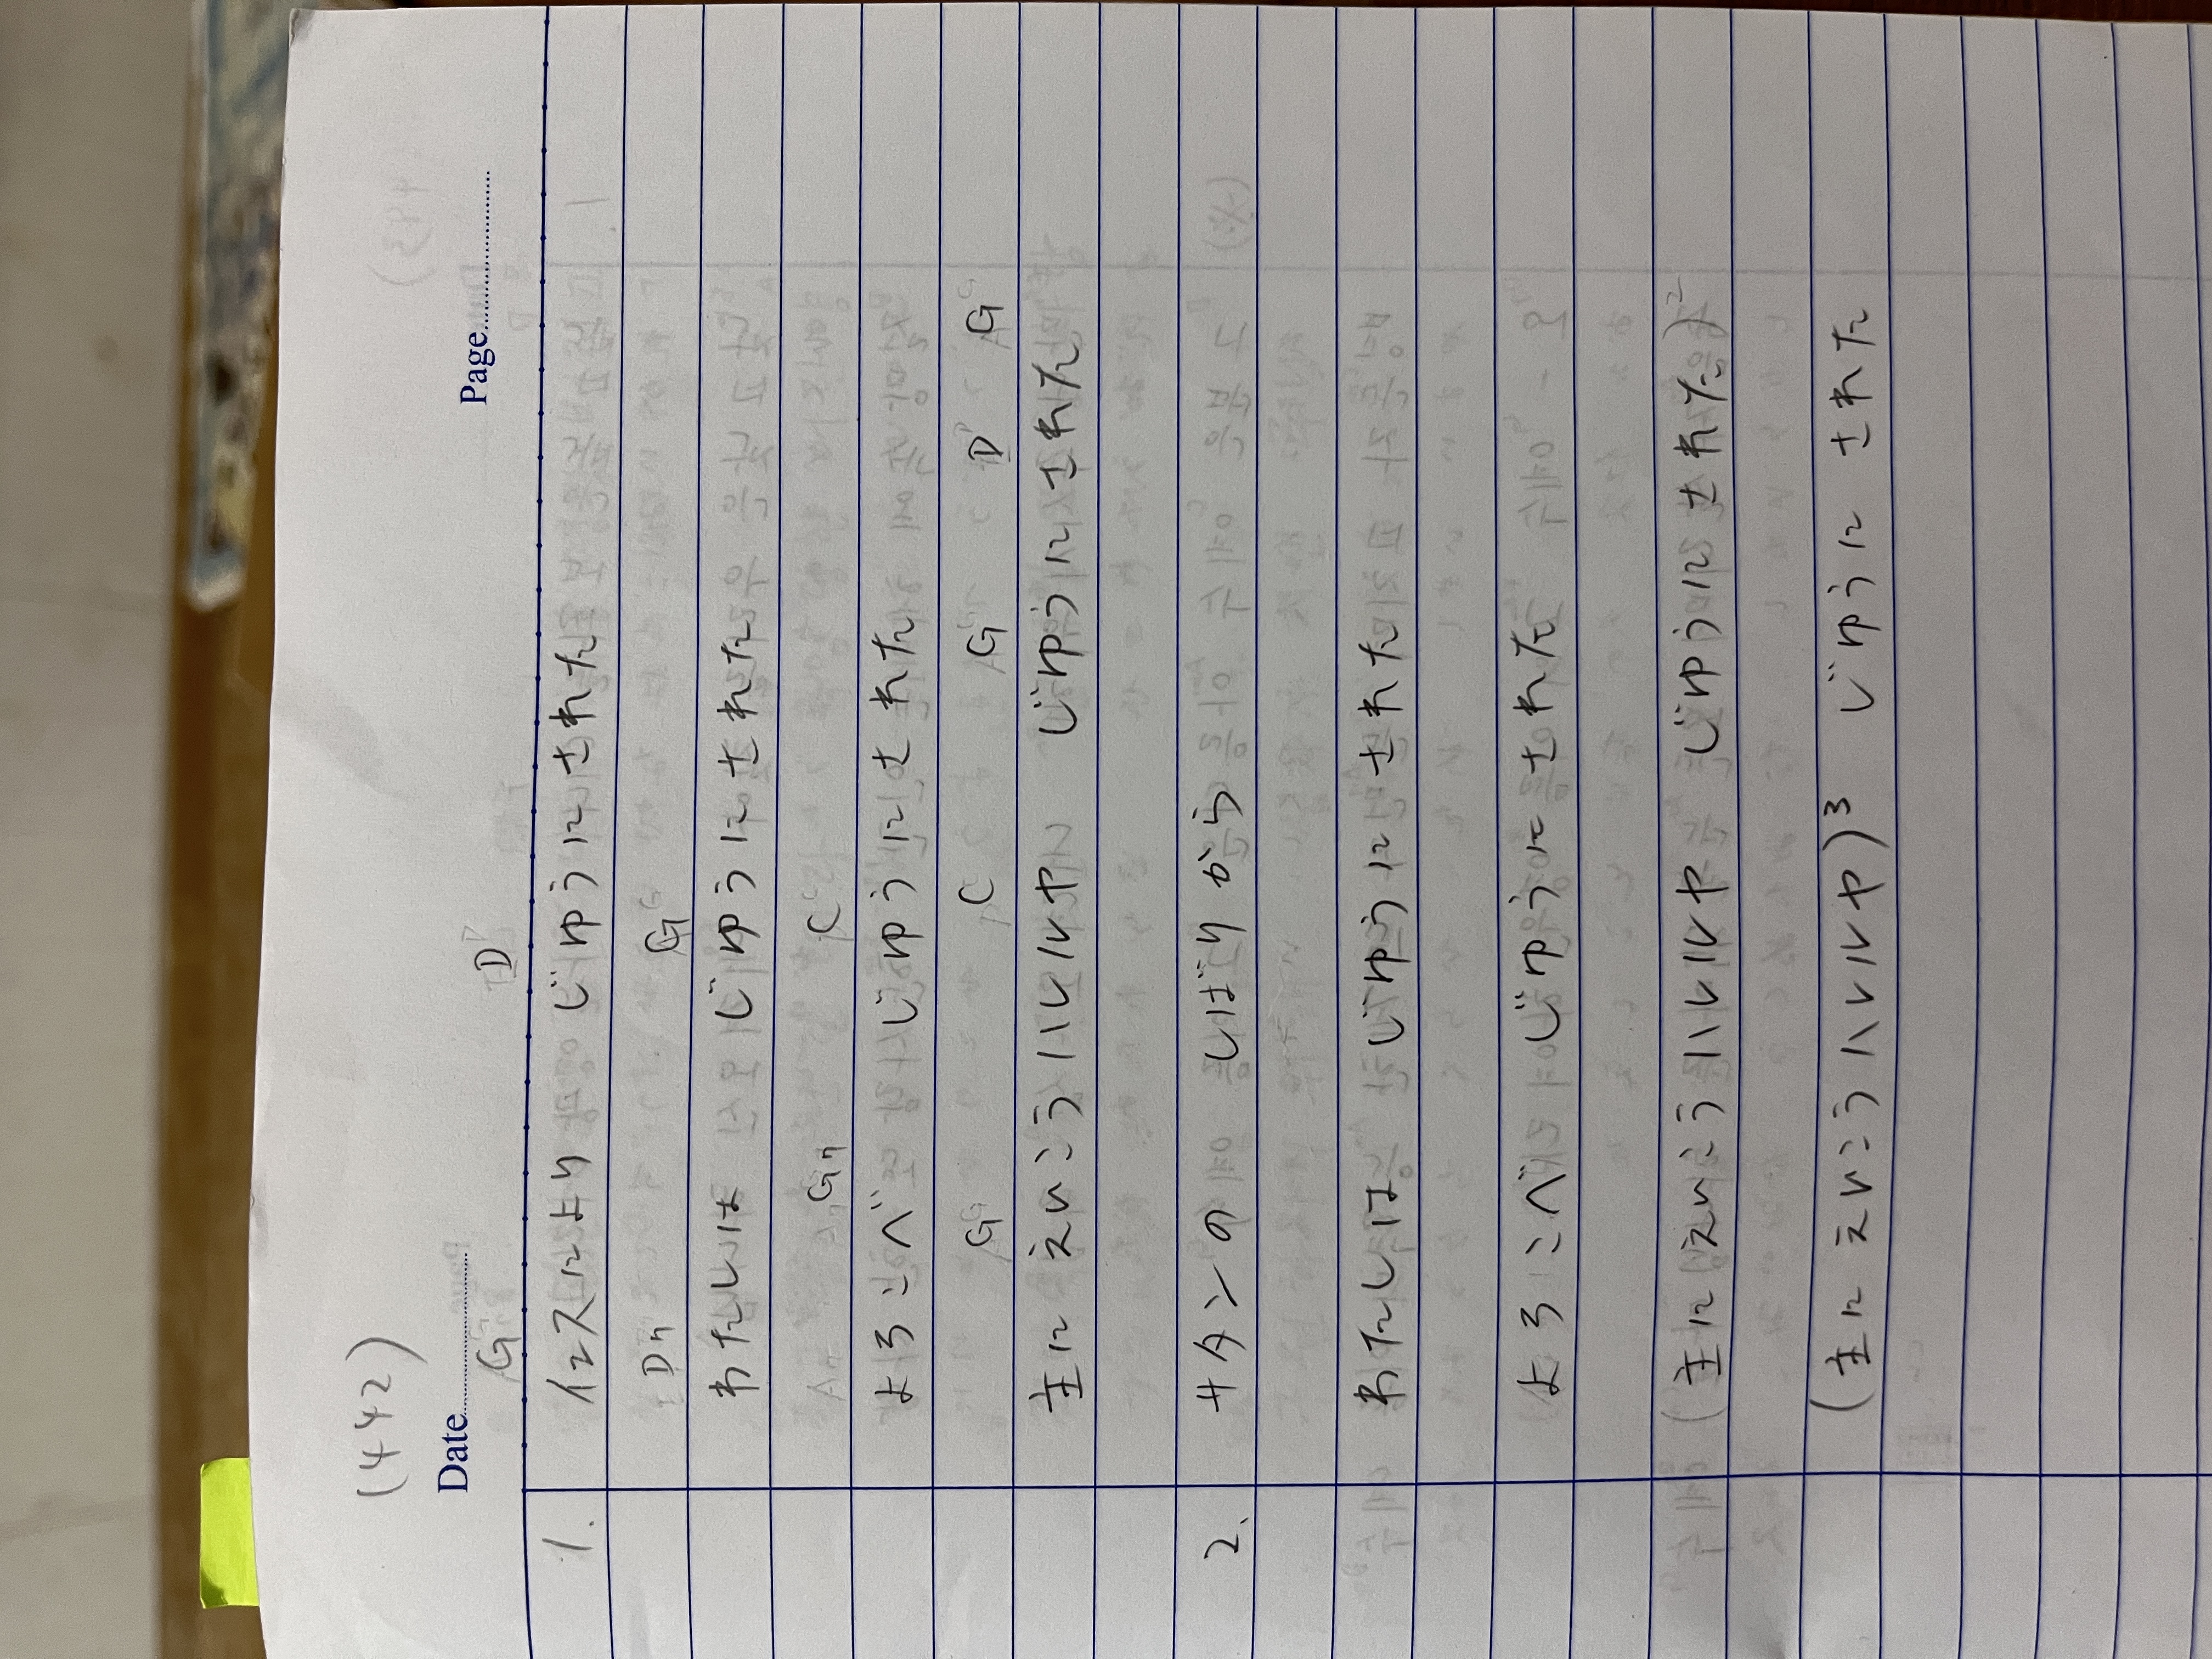 (442)
Date
Page
G D7
1. イエスにより じゆうにされた
D7 G
わたしは じゆうにされた
G7 C
よろこべ じゆうにされた
G C G D G
主に えいこう ハレルヤ じゆうにされた
2. サタンの しばりから
わたしは じゆうにされた
よろこべ じゆうにされた
(主に えいこう ハレルヤ じゆうにされた)2
(主に えいこう ハレルヤ)3 じゆうに された